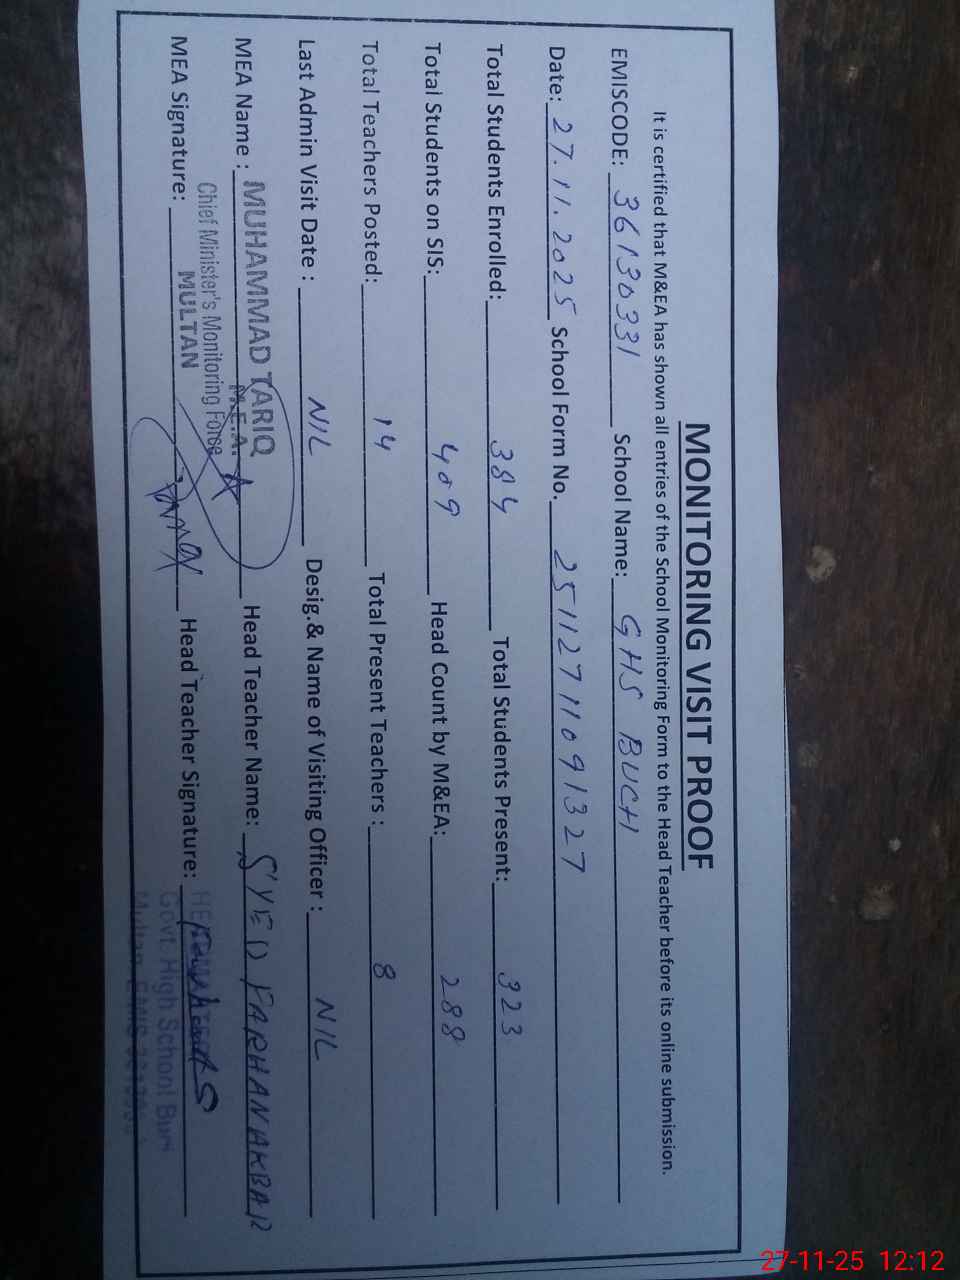 MONITORING VISIT PROOF
It is certified that M&EA has shown all entries of the School Monitoring Form to the Head Teacher before its online submission.
EMISCODE: 36130331 School Name: GHS BUCH
Date: 27.11.2025 School Form No. 25112711091327
Total Students Enrolled: 384 Total Students Present: 323
Total Students on SIS: 409 Head Count by M&EA: 288
Total Teachers Posted: 14 Total Present Teachers : 8
Last Admin Visit Date : NIL Desig.& Name of Visiting Officer : NIL
MEA Name : MUHAMMAD TARIQ Head Teacher Name: SYED FARHAN AKBAR
M.E.A.
Chief Minister's Monitoring Force
MULTAN
MEA Signature: Head Teacher Signature:
Govt. High School
Multan EMIS
27-11-25 12:12